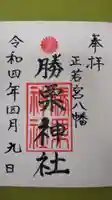 奉拝
正若宮八幡
勝栗神社
令和四年四月九日